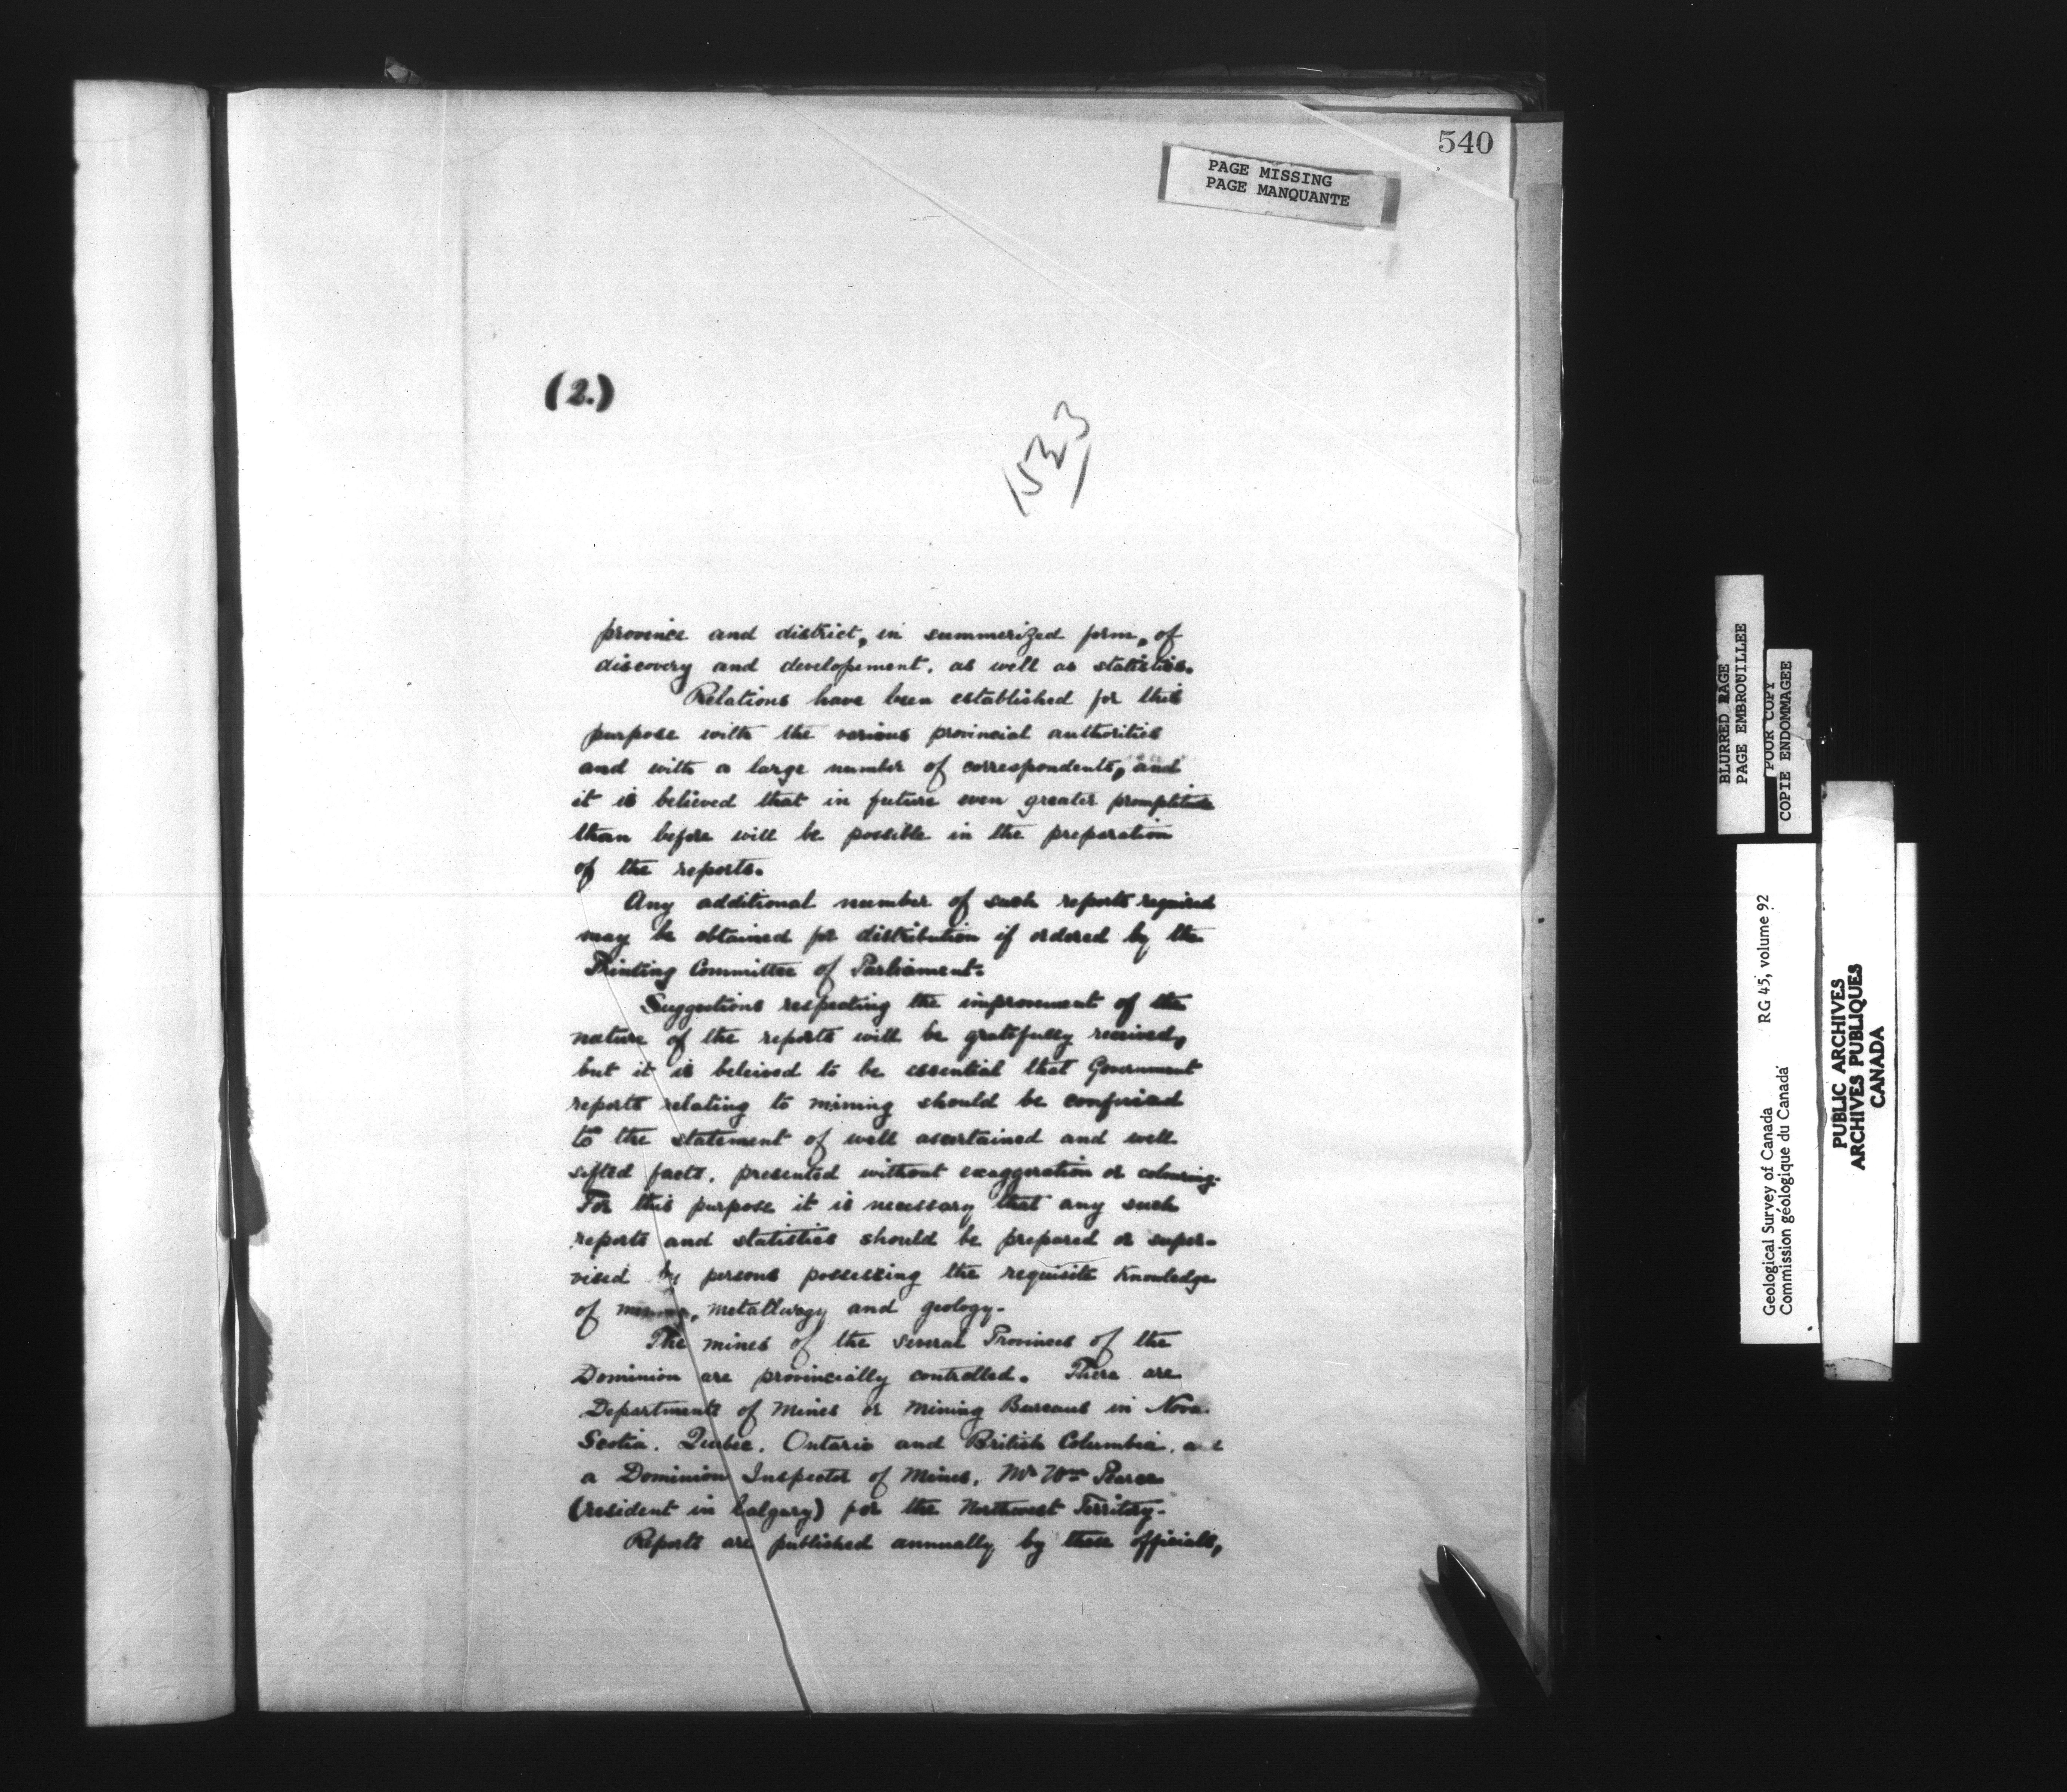 540
PAGE MISSING
PAGE MANQUANTE
(2.)
1523
province and district, in summerized form, of
discovery and developement, as well as statistics.
Relations have been established for this
purpose with the various provincial authorities
and with a large number of correspondents, and
it is believed that in future even greater promptitude
than before will be possible in the preparation
of the reports.
Any additional number of such reports required
may be obtained for distribution if ordered by the
Printing Committee of Parliament.
Suggestions respecting the improvment of the
nature of the reports will be gratefully received,
but it is beleived to be essential that Government
reports relating to mining should be confined
to the statement of well ascertained and well
sifted facts, presented without exaggeration or colouring.
For this purpose it is necessary that any such
reports and statistics should be prepared or super-
vised by persons possessing the requisite knowledge
of mining, metallurgy and geology.
The mines of the several Provinces of the
Dominion are provincially controlled. There are
Departments of Mines or Mining Bureaus in Nova
Scotia, Quebec, Ontario and British Columbia, and
a Dominion Inspector of Mines, Mr Wm Pearce
(resident in Calgary) for the Northwest Territory.
Reports are published annually by these officials,
BLURRED PAGE
PAGE EMBROUILLEE
POOR COPY
COPIE ENDOMMAGEE
Geological Survey of Canada RG 45, volume 92
Commission géologique du Canada
PUBLIC ARCHIVES
ARCHIVES PUBLIQUES
CANADA